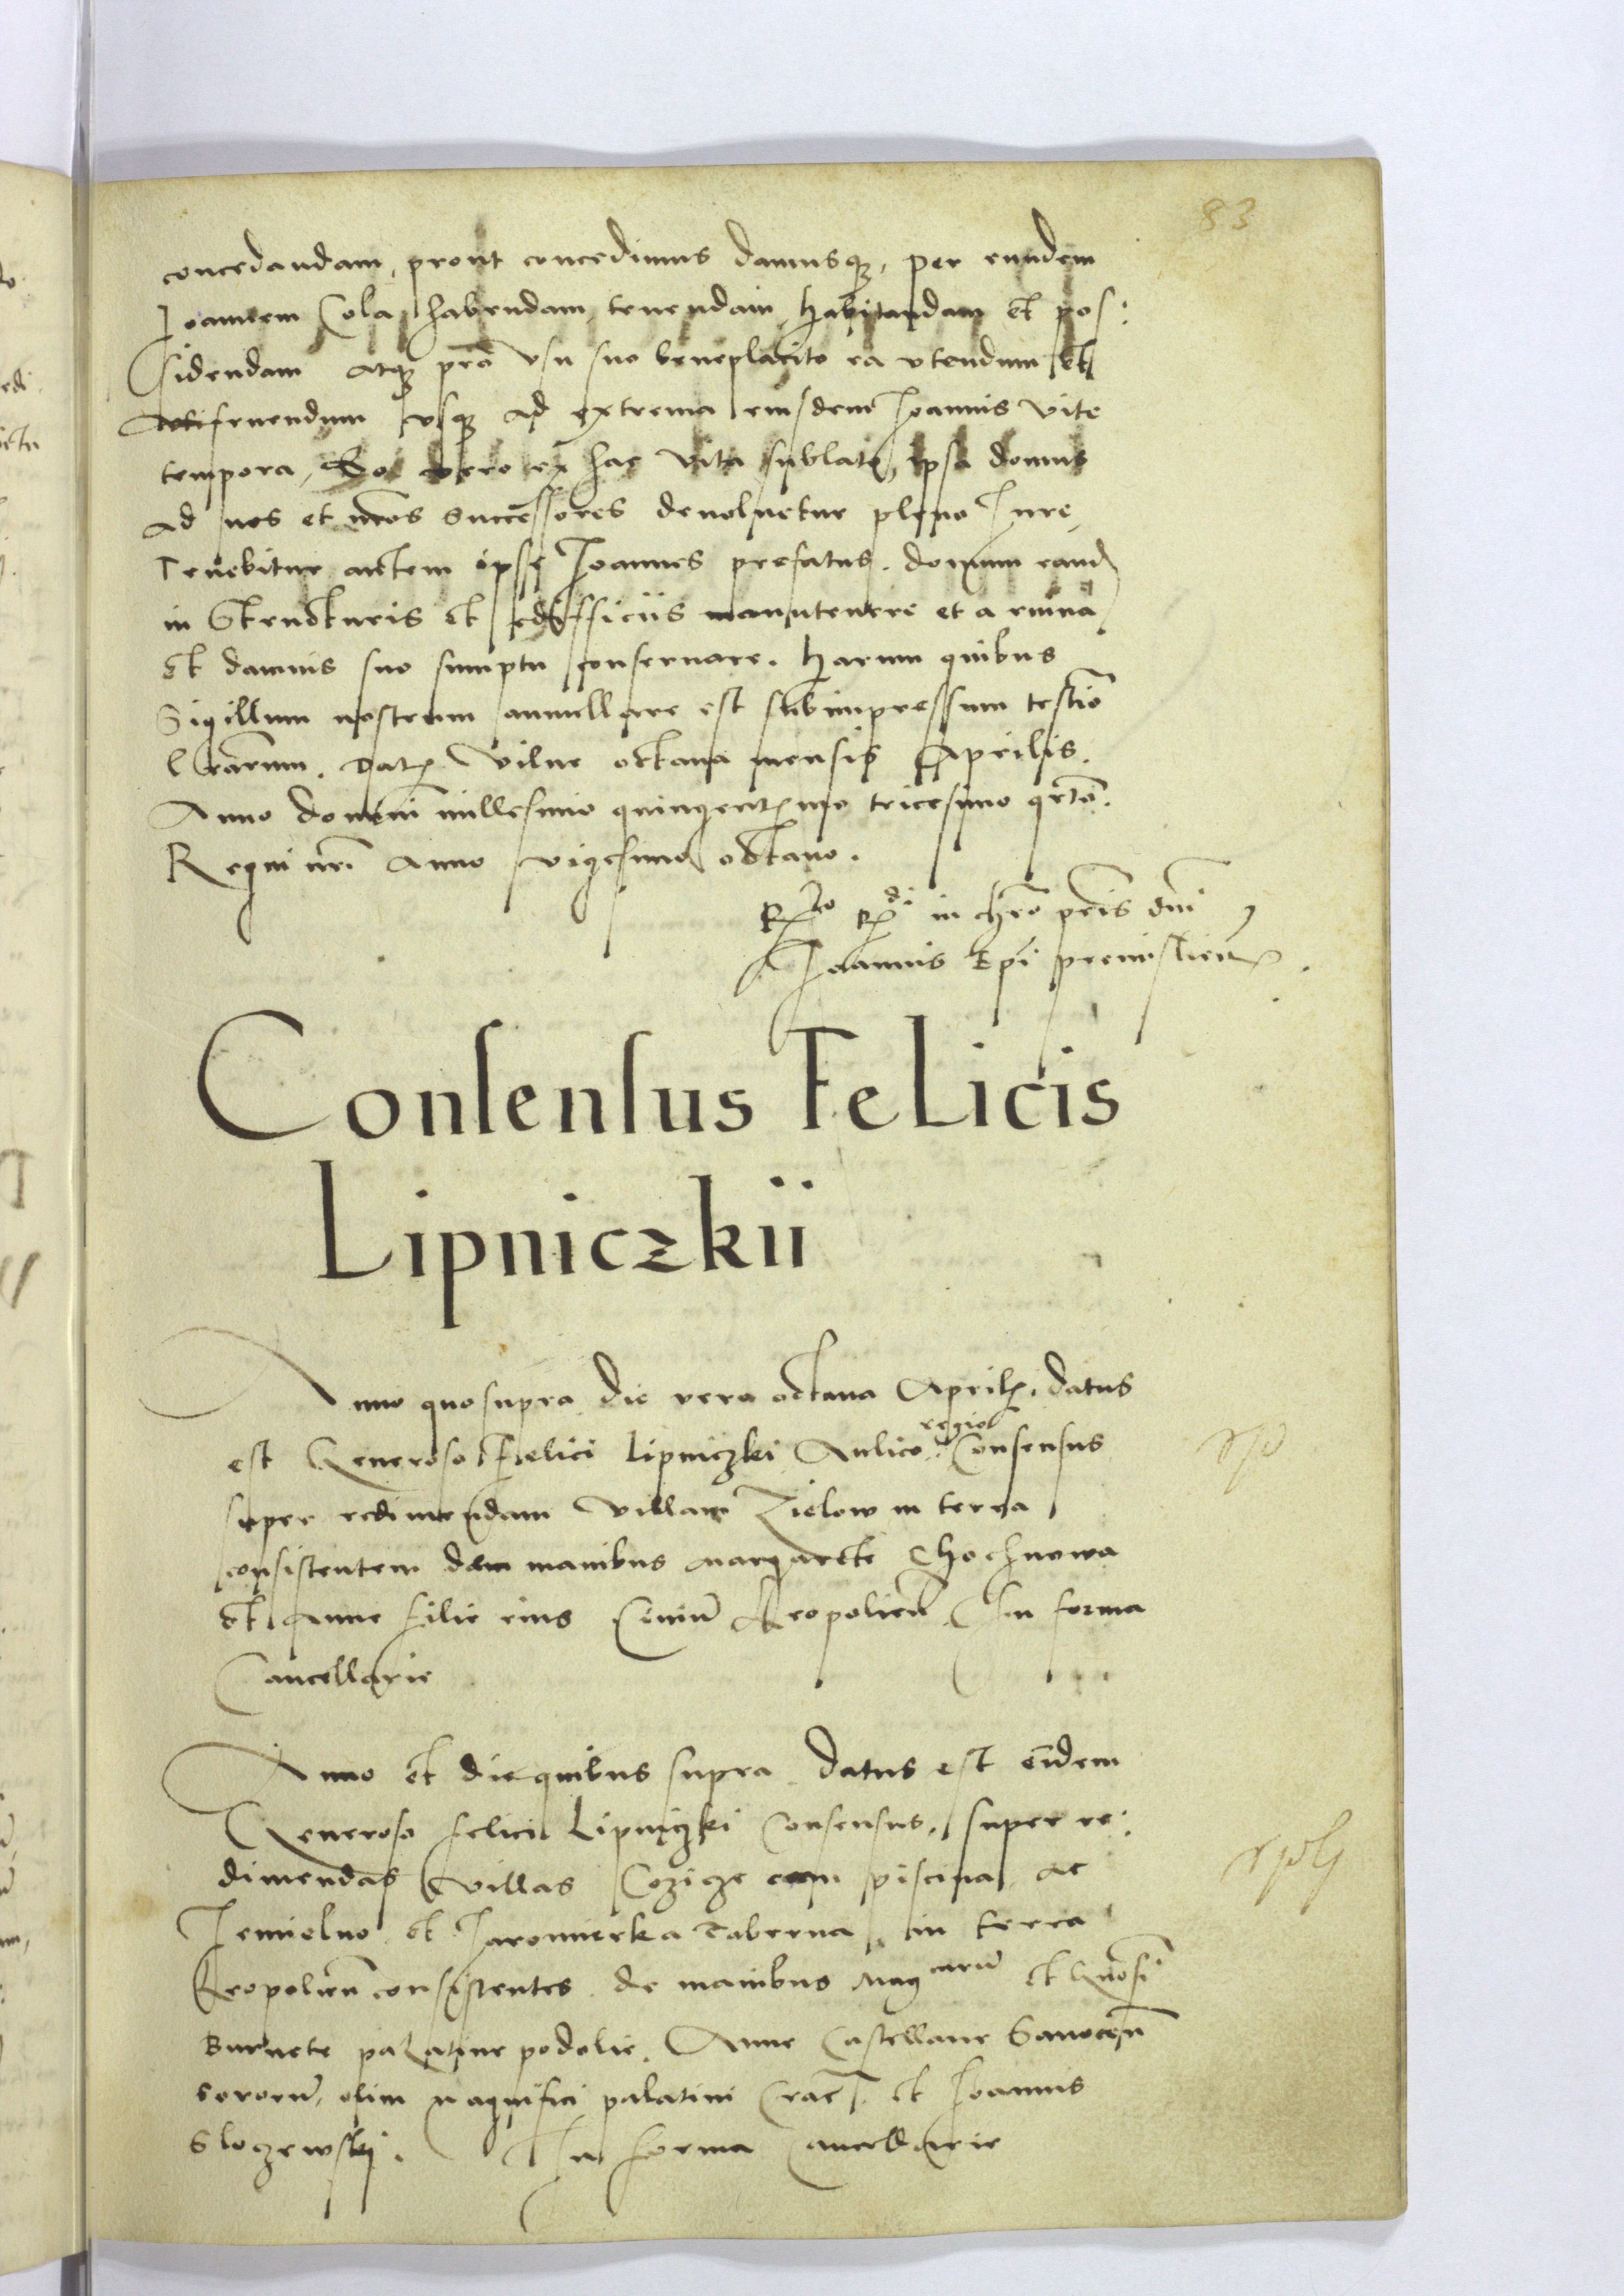 83
concedandam, prout concedimus damusq3, per eundem
Joannem Cola habendam, tenendam, habitandam et pos:
sidendam atq3 pro usu suo beneplacito ea utendum et
fruendum usq3 ad extrema eiusdem Joannis vite
tempora, Eo vero ex hac vita sublato, ipsa domus
ad nos et nros successores devoluetur pleno Jure,
Tenebitur autem ipse Joannes prefatus. domum eand
in structuris et edifficiis manutenere et a ruina
et damnis suo sumptu conseruare. Harum quibus
Sigillum nostrum annullare est subimpressum testio
lrarum. Dat Vilne octaua mensis Aprilis.
Anno domini millesimo quingentmo tricesimo qrto.
Regni nri Anno vigesimo octauo.
Rlo Rdi in chro pris dni
Joannis Epi premislien
Consensus Felicis
Lipniczkii
Anno quo supra die vero octaua April. datus
est Generoso Felici Lipniczki Aulico regio Consensus
super redimendam villam Zielow in terra
consistentem de manibus Margarete Chochnowa
et Anne filie eius Ciuiu Leopolien In forma
Cancellarie
Anno et die quibus supra datus est eidem
Generoso Felici Lipniczki Consensus, super re:
dimendas villas Cozicze cum piscina ac
Jemielno et Jaromierka taberna in terra
Leopolien consistentes de manibus Mag caru et Gnosi
Burnete palatine podolie. Anne Castellane Sanocen
sororu, olim magnifici palatini Crac. et Joannis
Sloczewski. In forma Cancellarie